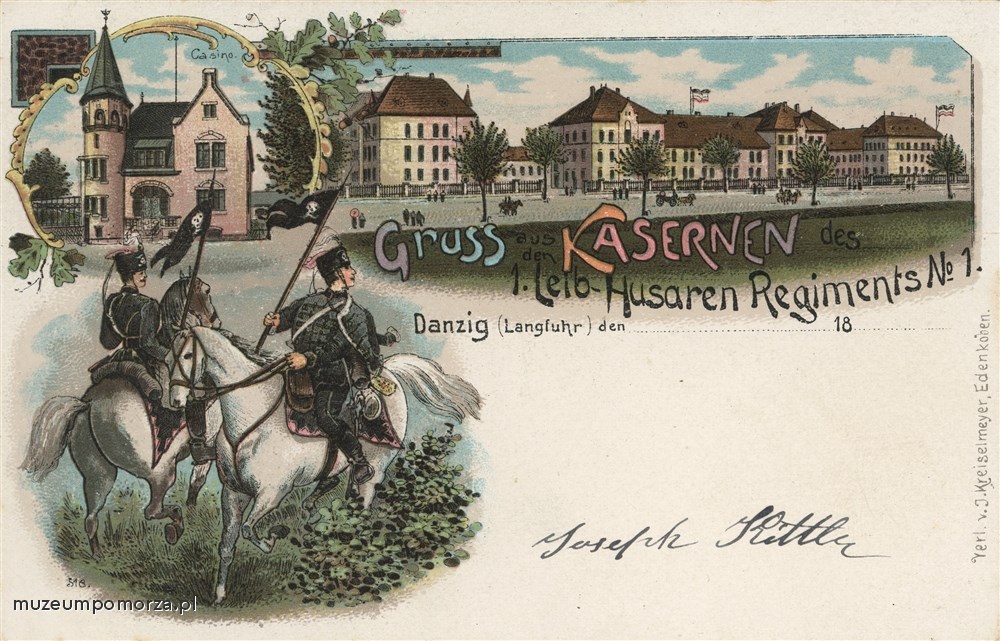 Casino.
Gruss aus den KASERNEN des
1. Leib-Husaren Regiments No 1.
Danzig (Langfuhr) den 18
Verl. v. J. Kreiselmeyer, Edenkoben.
Joseph Kittler
muzeumpomorza.pl